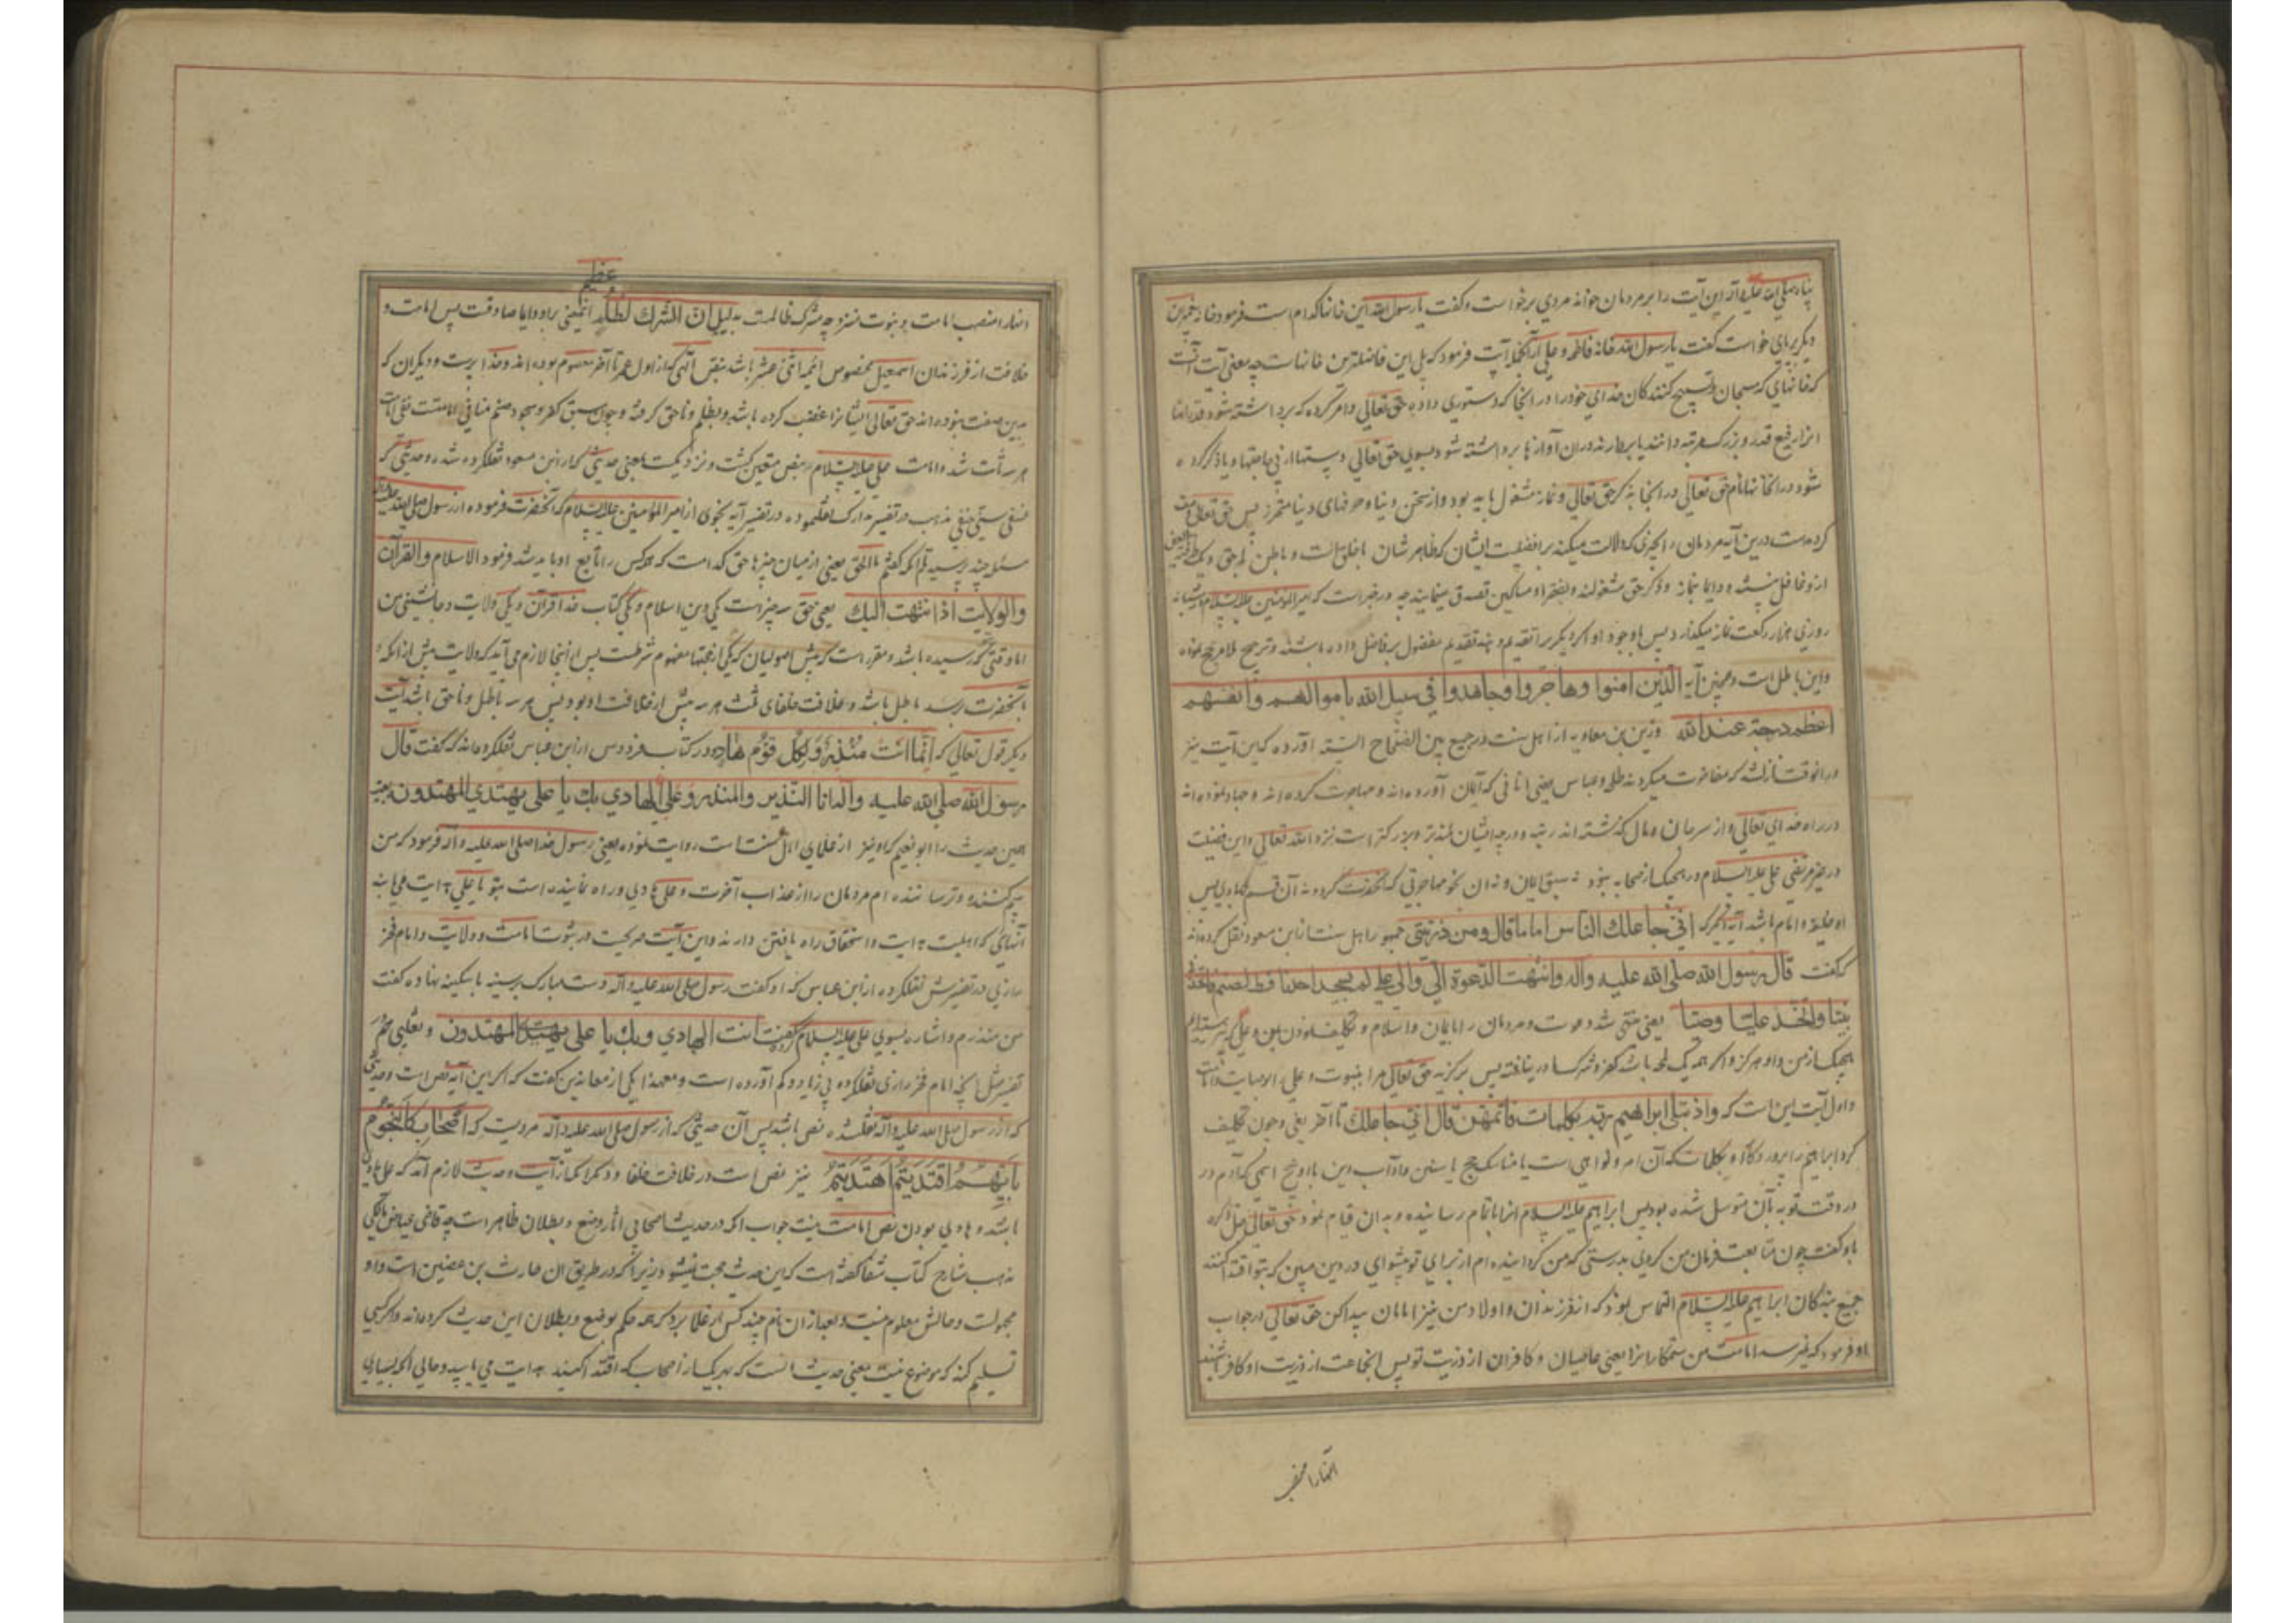 پناه صلی الله علیه و آله این آیت را بر مردمان خواند مردی برخواست و گفت یا رسول الله این خانها کدام است فرمود خانه پیغمبران
دیگر برپای خواست گفت یا رسول الله خانه فاطمه و علی از آنجا آیت فرمود که بلی این فاضلترین خانهاست چه معنی آیت آنست
که خانهای که مسبحان و تسبیح کنندکان خدای خود را در آنجا که دستوری داده حق تعالی و امر کرده که برداشته شود قدر
انرا رفیع قدر و بزرک مرتبه دانند یا بردارند در آن آوازها برداشته شود بسوی حق تعالی و یاد کرده
شود در آن خانها نام حق تعالی در آنجا بذکر حق تعالی و نماز مشغول باید بود و از سخن دنیا و حرفهای دنیا پس حق تعالی وصف
کرده است درین آیه مردمان را بچیزی که دلالت میکند بر افضلیت ایشان که ظاهر شان با خلق است و باطن با حق و یک طرفة العین
ازو غافل نیستند و دایما بنماز و ذکر حق مشغولند و بفقرا و مساکین تصدق مینمایند چه در خبر است که امیر المومنین علیه السلام در شبانه
روزی هزار رکعت نماز میکذارد پس باوجود او اکر دیکریرا تقدیم دهند تقدیم مفضول بر فاضل داده باشند و ترجیح بلا مرجح نموده
و این باطل است و همچنین آیه الذین امنوا وهاجروا وجاهدوا في سبيل الله باموالهم وانفسهم
اعظم درجة عند الله وزین بن معاویه از اهل سنت در جمع بین الصحاح السته آورده که این آیت نیز
در آنوقت نازلشد که مفاخرت میکردند طلحه و عباس یعنی انانی که ایمان آورده اند و مهاجرت کرده اند و جهاد نموده اند
در راه خدای تعالی و از سر جان و مال کذشته اند رتبه و درجه ایشان بلندتر و بزرکتر است نزد الله تعالی و این فضیلت
در غیر مرتضی علی علیه السلام در هیچیک از صحابه نبود نه سبق ایمان و نه آن نحو مهاجرتی که آنحضرت کرد و نه آن قسم جهادی پس
او خلیفه و امام باشد آیه دیکر که اني جاعلك للناس اماما قال ومن ذريتي جمهور اهل سنت از ابن مسعود نقل کرده اند
که گفت قال رسول الله صلى الله عليه واله وانتهت الدعوة الي والى علي لم يسجد احدنا قط لصنم فاتخذني
نبيا واتخذ عليا وصيا یعنی منتهی شد دعوت و مردمان را بایمان و اسلام و تکلیف نمودن بمن و علی
هیچیک از من و او هرکز و اکر همه یک لحظه باشد کفر و شرک ما را درنیافته پس برکزید حق تعالی مرا بنبوت و علی را بوصایت و امامت
و اول آیت این است که واذ ابتلى ابراهيم ربه بكلمات فاتمهن قال اني جاعلك تا آخر یعنی و چون تکلیف
کرد ابراهیم را پروردکار او بکلمات که آن امر و نواهی است یا مناسک حج یا سنن و آداب این یا اسمی که آدم در
در وقت توبه بآن متوسل شده بود پس ابراهیم علیه السلام انرا باتمام رسانیده و بدان قیام نمود حق تعالی
باو گفت چون متابعت فرمان من کردی بدرستی که من کردانیده ام از برای تو پیشوای در دین مبین که بتو اقتدا کنند
جمیع بندکان ابراهیم علیه السلام التماس نمود که از فرزندان و اولاد من نیز امامان پیدا کن حق تعالی در جواب
او فرمود که نمیرسد امامت من ستمکارانرا یعنی عاصیان و کافران از ذریت تو پس انجماعت از ذریت او کافر باشند
ایشانرا منصب
عظیم
ایشانرا منصب امامت و نبوت نرسد چه مشرک ظالمست بدلیل ان الشرك لظلم پس امامت و
خلافت از فرزندان اسمعیل مخصوص ائمه اثنی عشر باشد بنص الهی که از اول عمر تا آخر معصوم بوده اند و خدا پرست و دیکران که
بدین صفت نبوده اند حق تعالی ایشانرا غضب کرده باشد و بظلم و ناحق کرفته و چون سبق کفر و سجود صنم منافی امامتست نفی امامت
هر سه ثابت شد و امامت علی علیه السلام بنص متعین کشت و نزدیکست بمعنی حدیثی که از ابن مسعود نقلکرده شده و حدیثی که
نسفی سنی حنفی مذهب در تفسیر مدارک نقلنموده در تفسیر آیه نجوی از امیر المؤمنین علیه السلام که آنحضرت فرموده از رسول صلی الله علیه و آله
مسئله چند پرسیدم آنکه کفتم ما الحق یعنی از میان چیزها حق کدامست که هرکس را تابع او باید شد فرمود الاسلام والقرآن
والولایت اذا انتهت اليك یعنی حق سه چیز است یکی دین اسلام و یکی کتاب خدا قرآن و یکی ولایت و جانشینی من
اما وقتی که بتو رسیده باشد و مقرر است که پیش اصولیان که یکی از حجتها مفهوم شرطست پس از اینجا لازم می آید که ولایت پیش از انکه
بآنحضرت رسد باطل باشد و خلافت خلفای ثلث هر سه پیش از خلافت او بود پس هر سه باطل و ناحق باشد آیت
دیکر قول تعالی که انما انت منذر ولكل قوم هاد در کتاب فردوس از ابن عباس نقلکرده اند که گفت قال
رسول الله صلى الله عليه واله انا النذير والمنذر وعلي الهادي بك يا علي يهتدي المهتدون
همین حدیث را ابو نعیم که او نیز از علمای اهل سنت است روایت نموده یعنی رسول خدا صلی الله علیه و آله فرمود که من
بیم کننده و ترساننده ام مردمان را از عذاب آخرت و علی هادی و راه نماینده است بتو یا علی هدایت می یابند
آنهای که اهلیت هدایت و استحقاق راه یافتن دارند و این آیت صریحست در ثبوت امامت و ولایت و امام فخر
رازی در تفسیرش نقلکرده از ابن عباس که او کفت رسول صلی الله علیه و آله دست مبارک بر سینه بی کینه نهاده کفت
من منذرم و اشاره بسوی علی علیه السلام کرده گفت انت الهادي وبك يا علي يهتدي المهتدون و ثعلبی هم در
تفسیرش آنچه امام فخر رازی نقلکرده بی زیاد و کم آورده است و معهذا یکی از معاندین کفت که اکر این آیه نص است و حدیثی
که از رسول صلی الله علیه و آله نقلشده نص باشد پس آن حدیثی که از رسول صلی الله علیه و آله مرویست که اصحابي كالنجوم
بايهم اقتديتم اهتديتم نیز نص است در خلافت خلفا و دیکر آنکه از آیت و حدیث لازم آمد که علی هادی
باشد و هادی بودن نص امامت نیست جواب آنکه در حدیث اصحابی آثار وضع و بطلان ظاهر است چه قاضی عیاض مالکی
مذهب شارح کتاب شفا کفته است که این حدیث حجت نمیشود زیرا که در طریق آن حارث بن غضین است و او
مجهولست و حالش معلوم نیست و بعد از آن نام چند کس از علما برد که همه حکم بوضع و بطلان این حدیث کرده اند و اکر کسی
تسلیم کند که موضوع نیست یعنی حدیث آنست که بهر یک از اصحاب که اقتدا کنید هدایت می یابید و حال آنکه بسیاری